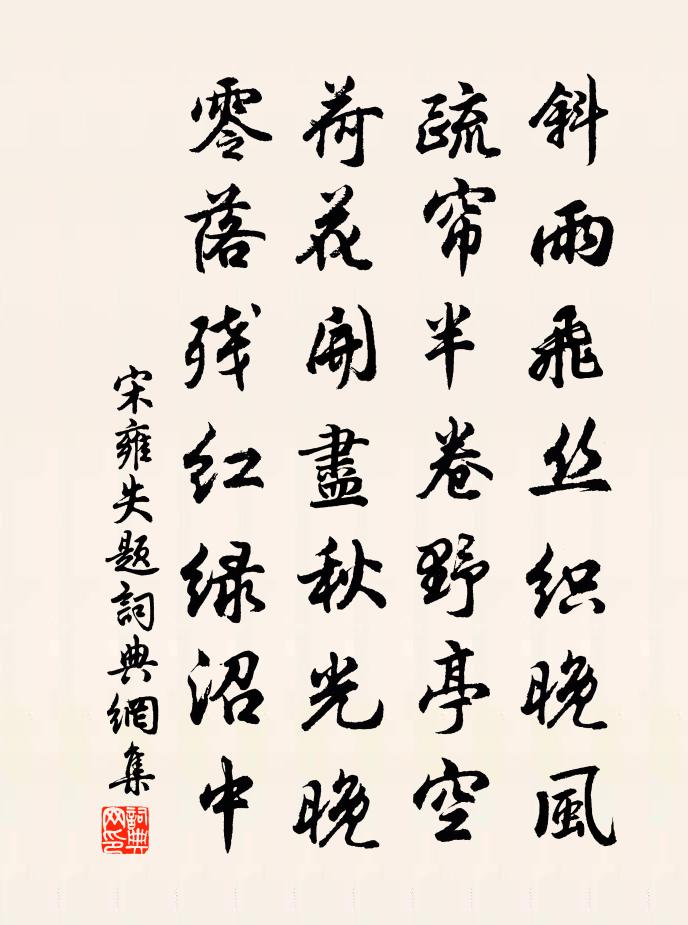 斜雨飛丝织晚風
疏帘半卷野亭空
荷花開盡秋光晚
零落残红绿沼中
宋雍失题詞典網集
詞典網印